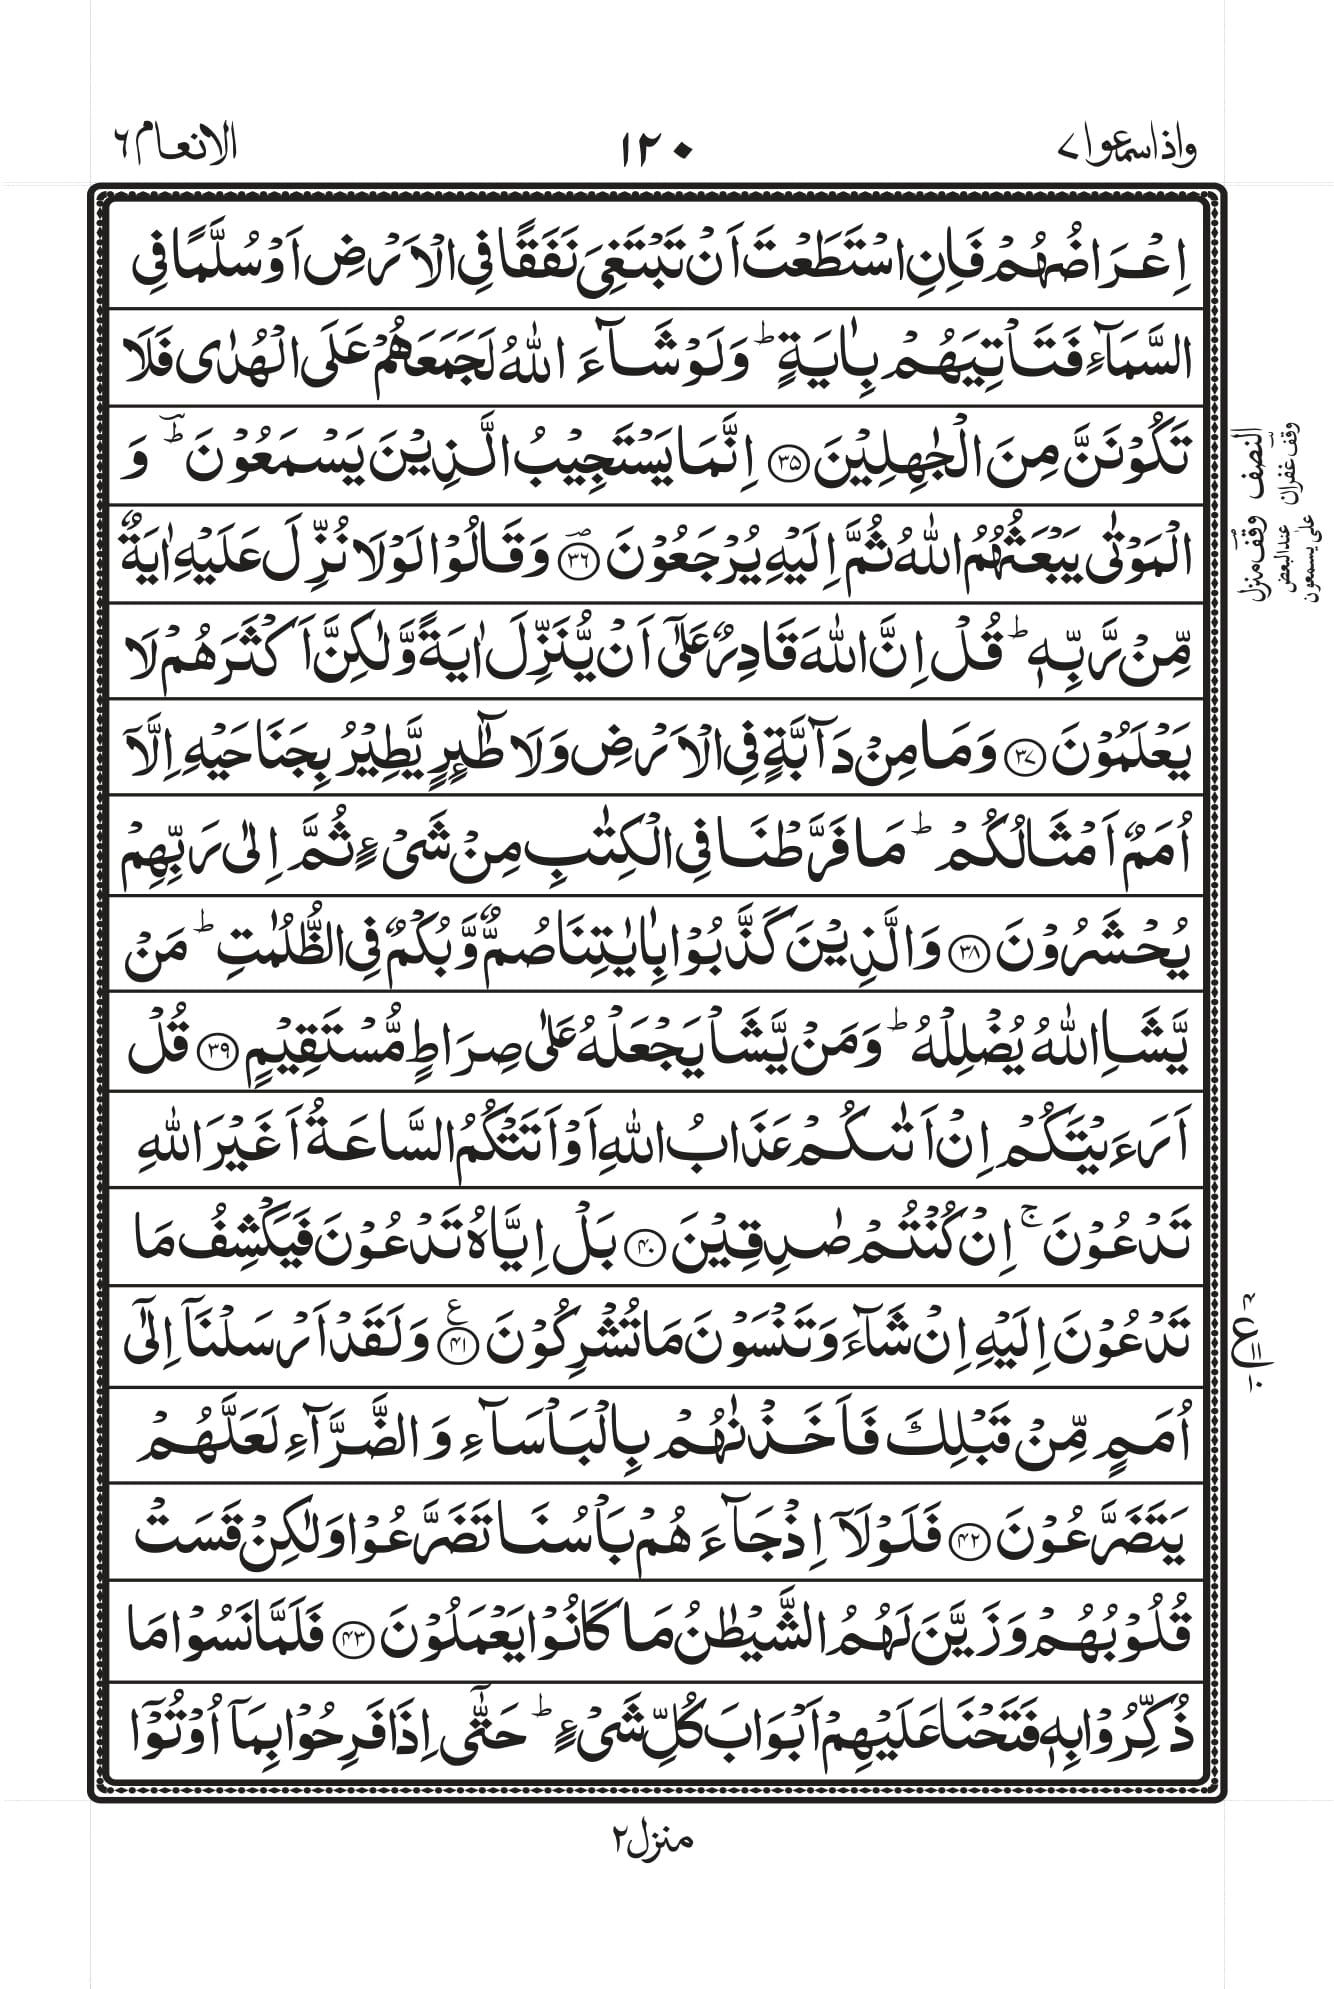 واذاسمعوا ٧
١٢٠
الانعام ٦
اِعْرَاضُهُمْ فَاِنِ اسْتَطَعْتَ اَنْ تَبْتَغِیَ نَفَقًا فِی الْاَرْضِ اَوْ سُلَّمًا فِی
السَّمَآءِ فَتَاْتِیَهُمْ بِاٰیَةٍ ؕ وَلَوْ شَآءَ اللّٰهُ لَجَمَعَهُمْ عَلَی الْهُدٰی فَلَا
تَكُوْنَنَّ مِنَ الْجٰهِلِیْنَ ﴿۳۵﴾ اِنَّمَا یَسْتَجِیْبُ الَّذِیْنَ یَسْمَعُوْنَ ؕ وَ
الْمَوْتٰی یَبْعَثُهُمُ اللّٰهُ ثُمَّ اِلَیْهِ یُرْجَعُوْنَ ﴿۳۶﴾ وَقَالُوْا لَوْلَا نُزِّلَ عَلَیْهِ اٰیَةٌ
مِّنْ رَّبِّهٖ ؕ قُلْ اِنَّ اللّٰهَ قَادِرٌ عَلٰۤی اَنْ یُّنَزِّلَ اٰیَةً وَّلٰكِنَّ اَكْثَرَهُمْ لَا
یَعْلَمُوْنَ ﴿۳۷﴾ وَمَا مِنْ دَآبَّةٍ فِی الْاَرْضِ وَلَا طٰٓئِرٍ یَّطِیْرُ بِجَنَاحَیْهِ اِلَّاۤ
اُمَمٌ اَمْثَالُكُمْ ؕ مَا فَرَّطْنَا فِی الْكِتٰبِ مِنْ شَیْءٍ ثُمَّ اِلٰی رَبِّهِمْ
یُحْشَرُوْنَ ﴿۳۸﴾ وَالَّذِیْنَ كَذَّبُوْا بِاٰیٰتِنَا صُمٌّ وَّبُكْمٌ فِی الظُّلُمٰتِ ؕ مَنْ
یَّشَاِ اللّٰهُ یُضْلِلْهُ ؕ وَمَنْ یَّشَاْ یَجْعَلْهُ عَلٰی صِرَاطٍ مُّسْتَقِیْمٍ ﴿۳۹﴾ قُلْ
اَرَءَیْتَكُمْ اِنْ اَتٰىكُمْ عَذَابُ اللّٰهِ اَوْ اَتَتْكُمُ السَّاعَةُ اَغَیْرَ اللّٰهِ
تَدْعُوْنَ ۚ اِنْ كُنْتُمْ صٰدِقِیْنَ ﴿۴۰﴾ بَلْ اِیَّاهُ تَدْعُوْنَ فَیَكْشِفُ مَا
تَدْعُوْنَ اِلَیْهِ اِنْ شَآءَ وَتَنْسَوْنَ مَا تُشْرِكُوْنَ ﴿۴۱﴾ ع وَلَقَدْ اَرْسَلْنَاۤ اِلٰۤی
اُمَمٍ مِّنْ قَبْلِكَ فَاَخَذْنٰهُمْ بِالْبَاْسَآءِ وَالضَّرَّآءِ لَعَلَّهُمْ
یَتَضَرَّعُوْنَ ﴿۴۲﴾ فَلَوْلَاۤ اِذْ جَآءَهُمْ بَاْسُنَا تَضَرَّعُوْا وَلٰكِنْ قَسَتْ
قُلُوْبُهُمْ وَزَیَّنَ لَهُمُ الشَّیْطٰنُ مَا كَانُوْا یَعْمَلُوْنَ ﴿۴۳﴾ فَلَمَّا نَسُوْا مَا
ذُكِّرُوْا بِهٖ فَتَحْنَا عَلَیْهِمْ اَبْوَابَ كُلِّ شَیْءٍ ؕ حَتّٰۤی اِذَا فَرِحُوْا بِمَاۤ اُوْتُوْۤا
النصف وقف منزل
وقف غفران عند البعض
علی یسمعون
٤
ع
١١
١٠
منزل ٢